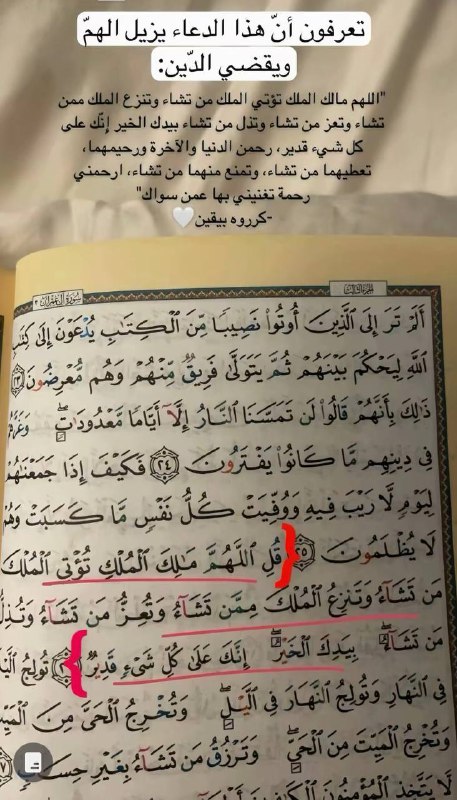 تعرفون أنّ هذا الدعاء يزيل الهمّ
ويقضي الدّين:
"اللهم مالك الملك تؤتي الملك من تشاء وتنزع الملك ممن
تشاء وتعز من تشاء وتذل من تشاء بيدك الخير إنّك على
كل شيء قدير، رحمن الدنيا والآخرة ورحيمهما،
تعطيهما من تشاء، وتمنع منهما من تشاء، ارحمني
رحمة تغنيني بها عمن سواك"
-كرروه بيقين🤍
الجزء الثالث
سورة آل عمران ٣
أَلَمْ تَرَ إِلَى الَّذِينَ أُوتُوا۟ نَصِيبًا مِّنَ الْكِتَٰبِ يُدْعَوْنَ إِلَىٰ
اللَّهِ لِيَحْكُمَ بَيْنَهُمْ ثُمَّ يَتَوَلَّىٰ فَرِيقٌ مِّنْهُمْ وَهُم مُّعْرِضُونَ ٢٣
ذَٰلِكَ بِأَنَّهُمْ قَالُوا۟ لَن تَمَسَّنَا النَّارُ إِلَّآ أَيَّامًا مَّعْدُودَٰتٍۖ
فِى دِينِهِم مَّا كَانُوا۟ يَفْتَرُونَ ٢٤ فَكَيْفَ إِذَا جَمَعْنَٰهُمْ
لِيَوْمٍ لَّا رَيْبَ فِيهِ وَوُفِّيَتْ كُلُّ نَفْسٍ مَّا كَسَبَتْ وَهُمْ
لَا يُظْلَمُونَ ٢٥ قُلِ اللَّهُمَّ مَٰلِكَ الْمُلْكِ تُؤْتِى الْمُلْكَ
مَن تَشَآءُ وَتَنزِعُ الْمُلْكَ مِمَّن تَشَآءُ وَتُعِزُّ مَن تَشَآءُ وَتُذِلُّ
مَن تَشَآءُۖ بِيَدِكَ الْخَيْرُۖ إِنَّكَ عَلَىٰ كُلِّ شَىْءٍ قَدِيرٌ تُولِجُ
فِى النَّهَارِ وَتُولِجُ النَّهَارَ فِى الَّيْلِۖ وَتُخْرِجُ الْحَىَّ مِنَ
وَتُخْرِجُ الْمَيِّتَ مِنَ الْحَىِّۖ وَتَرْزُقُ مَن تَشَآءُ بِغَيْرِ حِسَابٍ
لَّا يَتَّخِذِ الْمُؤْمِنُونَ